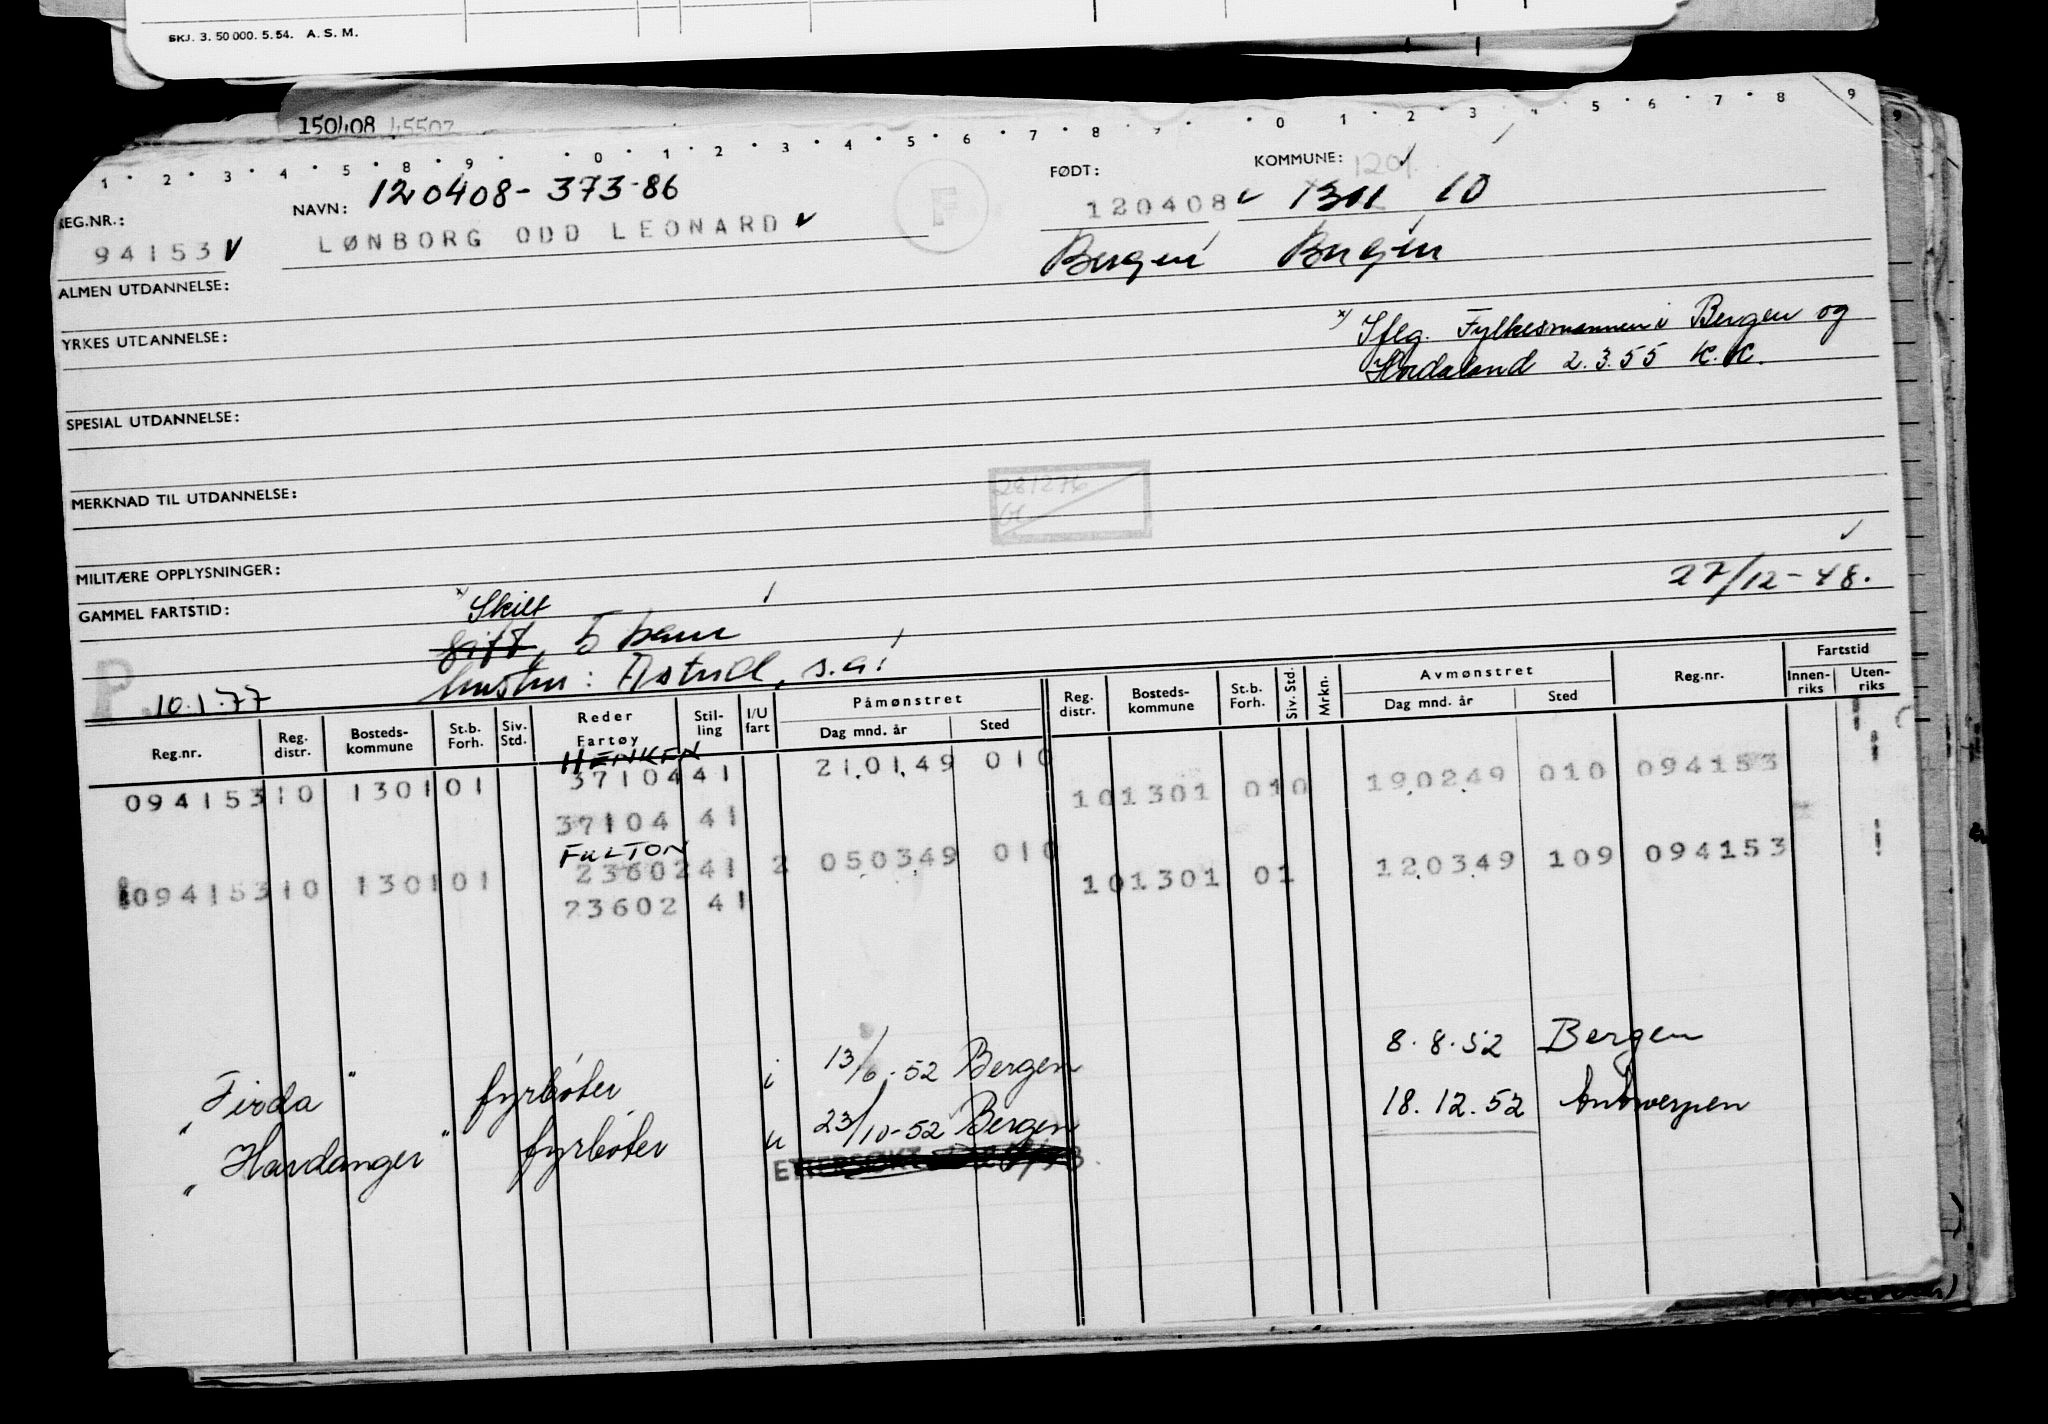 SKJ. 3. 50 000. 5. 54. A. S. M.
150408 45507
1 · 2 · 3 · 4 · 5 · 8 · 9 · · 0 · 1 · 2 · 3 · 4 · 5 · 6 · 7 · 8 · 9 · · 0 1 2 3 4 · 5 · 6 · 7 · 8 9
REG.NR.: NAVN: 120408-373-86 FØDT: KOMMUNE: 1201
94153 LØNBORG ODD LEONARD F 120408 1301 10
Bergen Bergen
ALMEN UTDANNELSE:
x) Iflg. Fylkesmannen i Bergen og
YRKES UTDANNELSE:
Hordaland 2.3.55 K.K.
SPESIAL UTDANNELSE:
MERKNAD TIL UTDANNELSE:
281276
MILITÆRE OPPLYSNINGER:
27/12-48.
GAMMEL FARTSTID:
x) Skilt
gift, 5 barn
hustru: Astrid, s.a.
P. 10.1.77
Reg.nr. Reg. distr. Bosteds-kommune St.b. Forh. Siv. Std. Reder Fartøy Stil-ling I/U fart Påmønstret Dag mnd. år Sted Reg. distr. Bosteds-kommune St.b. Forh. Siv. Std. Mrkn. Avmønstret Dag mnd. år Sted Reg.nr. Fartstid Innen-riks Uten-riks
HENKEN
094153 10 1301 01 37104 41 210149 010 10 1301 010 190249 010 094153
37104 41
FULTON
094153 10 1301 01 23602 41 2 050349 010 10 1301 01 120349 109 094153
23602 41
"Firda" fyrbøter i 13/6-52 Bergen 8.8.52 Bergen
"Hardanger" fyrbøter u 23/10-52 Bergen 18.12.52 Antwerpen
ETTERSØKT